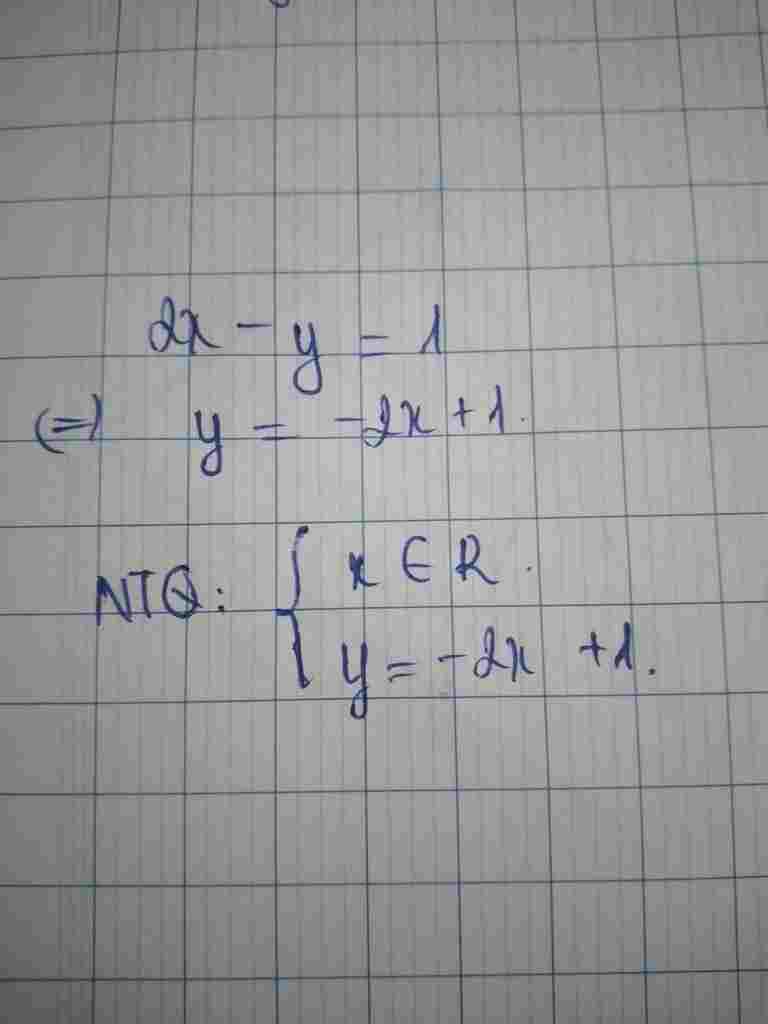 2x - y = 1
(=) y = -2x + 1.
NTQ: { x ∈ R.
y = -2x + 1.